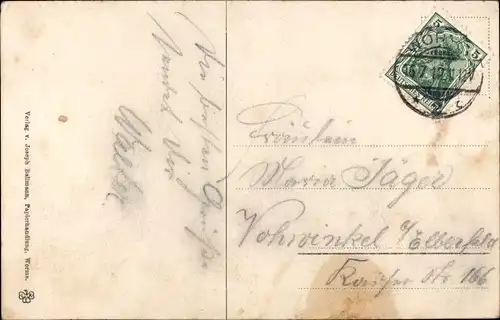 Die besten Grüße
sendet Dir
Walter
Verlag v. Joseph Ballmann, Papierhandlung, Worms.
5 5
WORMS
Fräulein
Maria Jäger
Vohwinkel b/Elberfeld
Kaiser Str 166